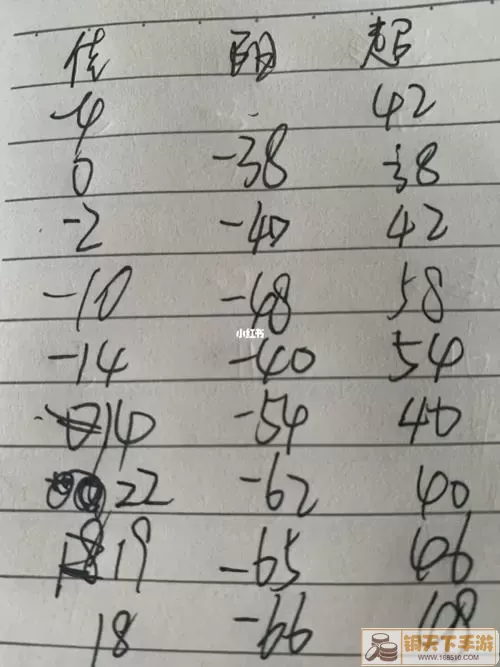 佳 阳 超
-4 42
0 -38 38
-2 -40 42
-10 -48 58
小红书
-14 -40 54
14 -54 40
22 -62 40
19 -65 46
18 -66
铜天下手游
www.168510.com